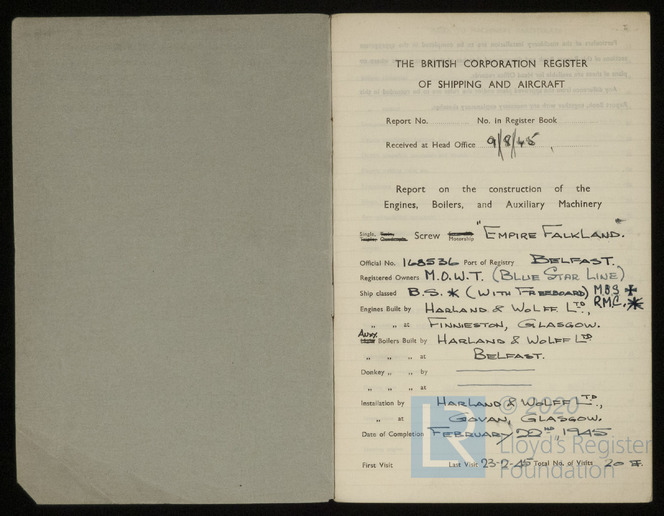 THE BRITISH CORPORATION REGISTER
OF SHIPPING AND AIRCRAFT
Report No. No. in Register Book
Received at Head Office 9/8/45
Report on the construction of the
Engines, Boilers, and Auxiliary Machinery
Single, Screw Motorship "EMPIRE FALKLAND."
Official No. 168536 Port of Registry BELFAST.
Registered Owners M.O.W.T. (BLUE STAR LINE)
Ship classed B.S.* (WITH FREEBOARD) M.B.S +
R.M.C. *
Engines Built by HARLAND & WOLFF LTD
„ „ at FINNIESTON, GLASGOW.
Auxy. Boilers Built by HARLAND & WOLFF LTD
„ „ at BELFAST.
Donkey „ „ by
„ „ at
Installation by HARLAND & WOLFF LTD.,
„ at GOVAN, GLASGOW.
Date of Completion FEBRUARY 22ND, 1945
First Visit Last Visit 23-2-45 Total No. of Visits 20
LR
© 2020
Lloyd's Register
Foundation